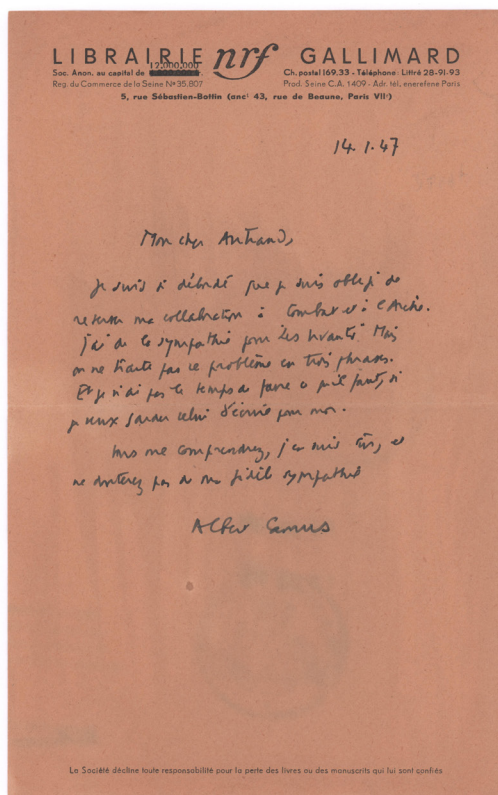 LIBRAIRIE nrf GALLIMARD
Soc. Anon. au capital de 12.000.000
Reg. du Commerce de la Seine Nº 35.807
Ch. postal 169.33 - Téléphone : Littré 28-91-93
Prod. Seine C.A. 1409 - Adr. tél. enerefene Paris
5, rue Sébastien-Bottin (anct 43, rue de Beaune, Paris VIIe)
14.1.47
Mon cher
Je suis si débordé que je suis obligé de
refuser ma collaboration à Combat et à l'Arche.
J'ai de la sympathie pour les Vivants. Mais
on ne traite pas ce problème en trois phrases.
Et je n'ai pas le temps de faire ce qu'il faut, si
je veux garder celui d'écrire pour moi.
Vous me comprendrez, j'en suis sûr, et
ne douterez pas de ma fidèle sympathie
Albert Camus
La Société décline toute responsabilité pour la perte des livres ou des manuscrits qui lui sont confiés